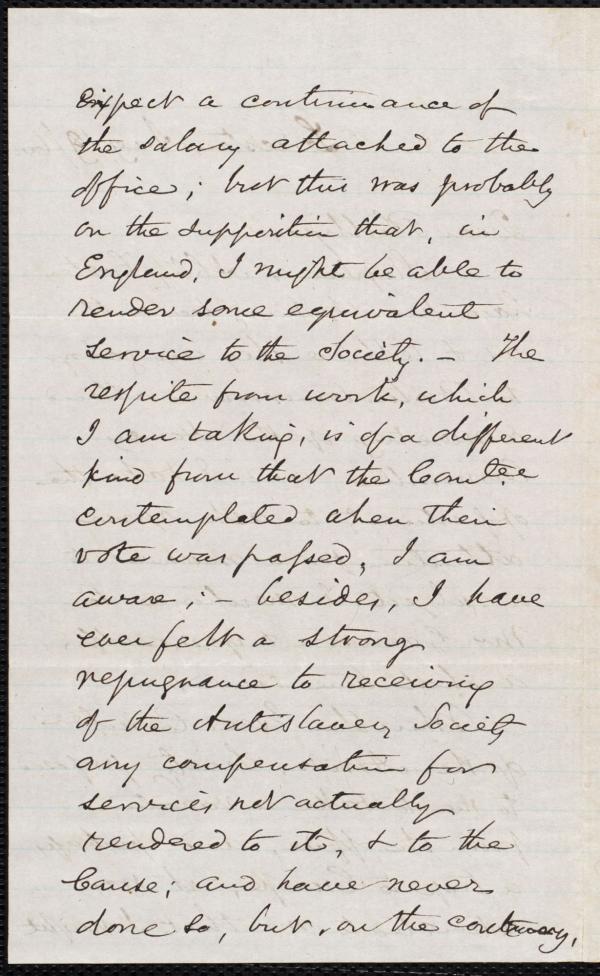 expect a continuance of
the salary attached to the
office; but this was probably
on the supposition that, in
England, I might be able to
render some equivalent
service to the Society. – The
respite from work, which
I am taking, is of a different
kind from that the Comtee
contemplated when their
vote was passed, I am
aware; – besides, I have
ever felt a strong
repugnance to receiving
of the Antislavery Society
any compensation for
services not actually
rendered to it, & to the
Cause; and have never
done so, but, on the contrary,